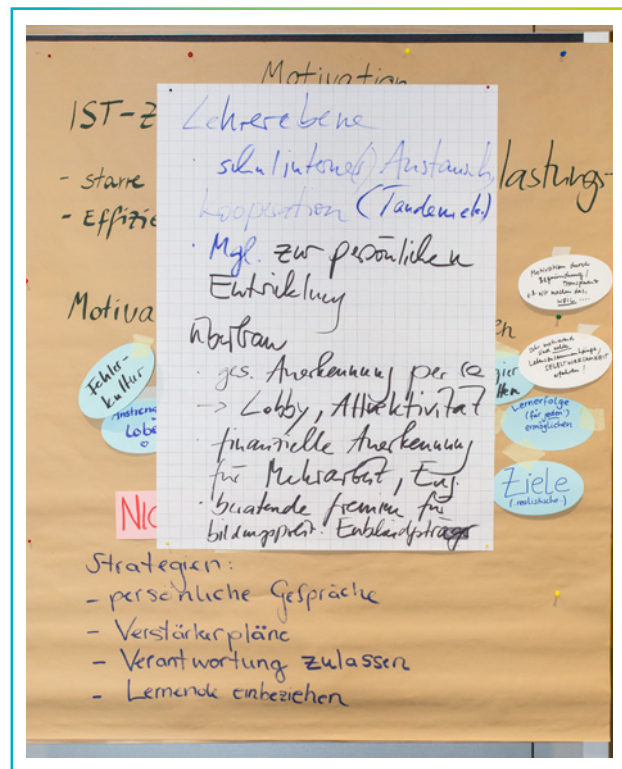 Motivation
IST-Z
- starre
- Effizie
lastungs-
Motiva
en
Lehrerebene
schulinterne(r) Austausch,
Kooperation (Tandem etc.)
· Mgl. zur persönlichen
Entwicklung
Überbau
· ges. Anerkennung per se
-> Lobby, Attraktivität
· finanzielle Anerkennung
für Mehrarbeit, Eng.
· beratende Gremien für
bildungspolit.
Motivation durch
Begründung/
Transparenz
wir machen das,
weil ....
SELBSTWIRKSAMKEIT
erfahren!
Fehler-
kultur
Loben
Lernerfolge
(für jeden)
ermöglichen
Ziele
(realistische)
Strategien:
- persönliche Gespräche
- Verstärkerpläne
- Verantwortung zulassen
- Lernende einbeziehen